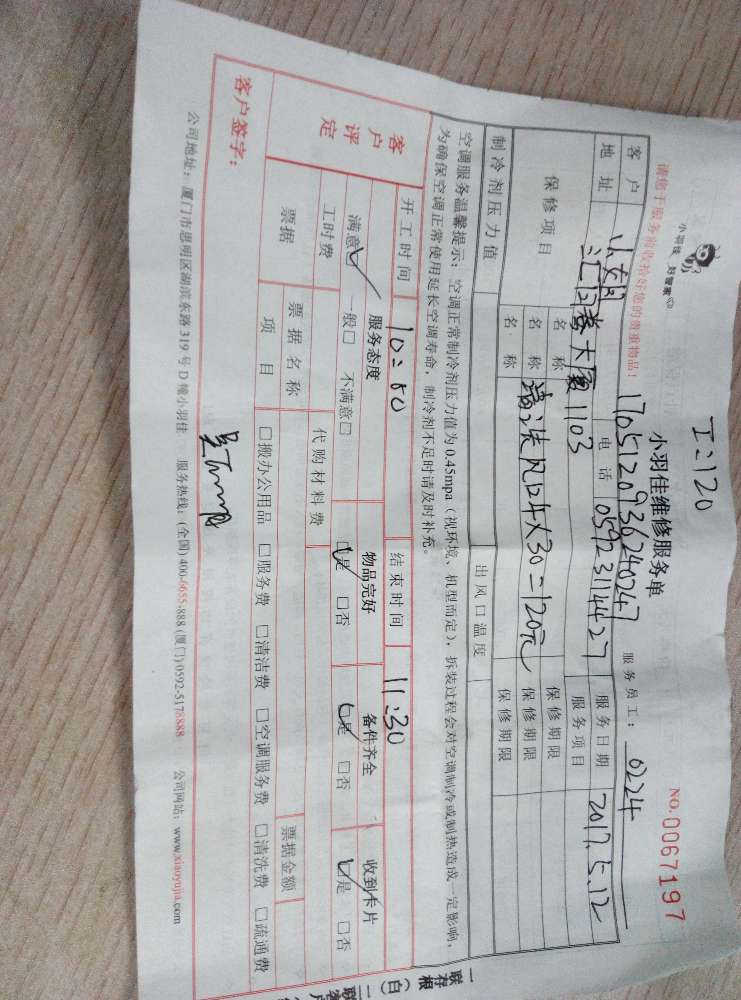 工:120
小羽佳 好管家
小羽佳维修服务单
NO.0067197
1705120936240247
请您于服务前收拾好您的贵重物品!
服务员工: 0224
客户 电话 05923114427 服务日期 2017.5.12
地址 大厦1103 服务项目
保修项目 名称 保修期限
名称 清洗风口4×30=120元 保修期限
名称 保修期限
制冷剂压力值 出风口温度
空调服务温馨提示:空调正常制冷剂压力值为0.45mpa(视环境、机型而定),拆装过程会对空调制冷或制热造成一定影响,
为确保空调正常使用延长空调寿命,制冷剂不足时请及时补充。
客户评定
开工时间 10:50 结束时间 11:30
服务态度 物品完好 备件齐全 收到卡片
满意☑ 一般□ 不满意□ ☑是 □否 ☑是 □否 ☑是 □否
工时费 代购材料费
票据 票据名称 票据金额
项目 □搬办公用品 □服务费 □清洁费 □空调服务费 □清洗费 □疏通费
客户签字:
公司地址:厦门市思明区湖滨东路319号D幢小羽佳 服务热线:(全国)400-6655-888 (厦门)0592-5178888 公司网站:www.xiaoyujia.com
一联存根(白)二联客户